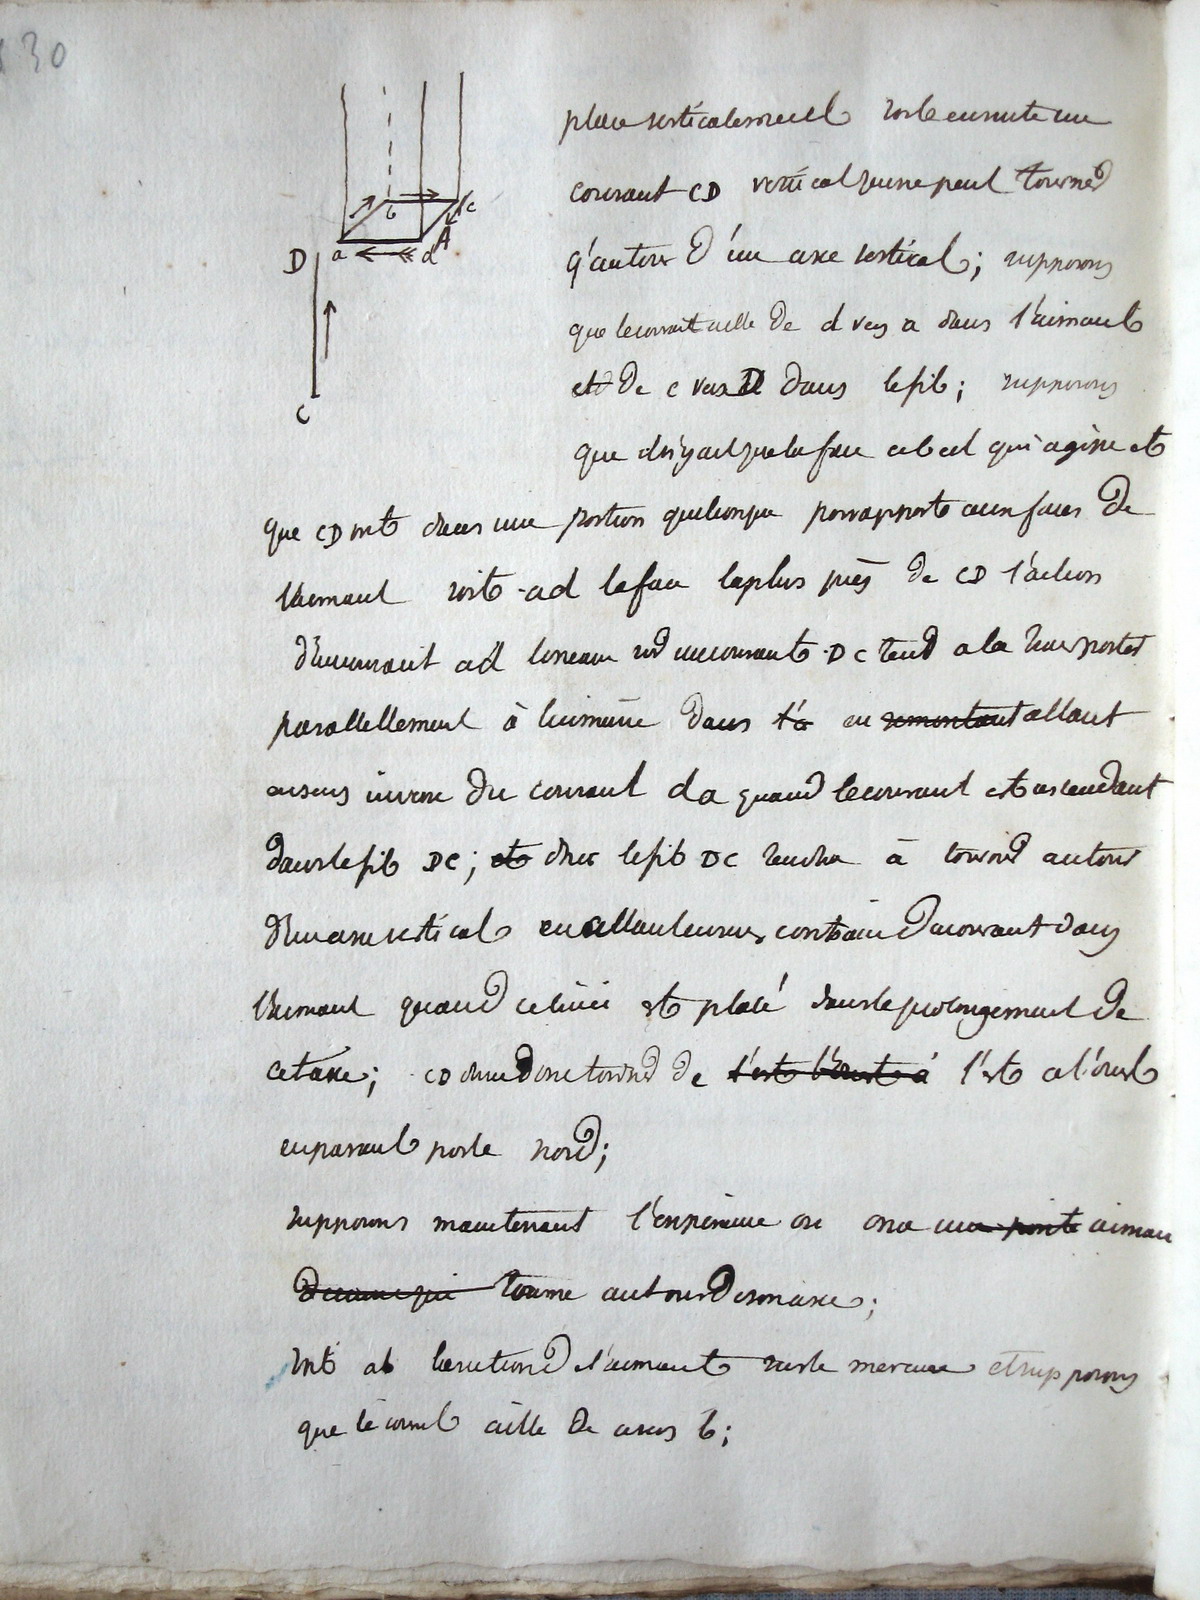 130
placé verticalement soit ensuite un
courant CD vertical qui ne peut tourner
q'autour d'un axe vertical; supposons
que le courant aille de d vers a dans l'aimant
et de c vers D dans le fil; supposons
que d'n'y ait que la face abcd qui agisse et
que CD soit dans une portion quelconque par rapport aux faces de
l'aimant soit ad la face la plus près de CD l'action
d'un courant ad horizontal sur un courant DC tend a le transporter
parallellement à lui même dans l'a en remontant allant
au sens inverse du courant da quand le courant est ascendant
dans le fil DC; et donc le fil DC tendra à tourner autour
d'un axe vertical en allant en sens contraire du courant dans
l'aimant quand celui ci est placé dans le prolongement de
cet axe; CD devra donc tourner de l'est l'ouest à l'est a l'ouest
en passant par le nord;
supposons maintenant l'expérience où on a une pointe aimant
d'acier qui tourne autour de son axe;
soit ab la section de l'aimant sur le mercure et supposons
que le courant aille de a vers b;
a
b
c
d
A
D
C